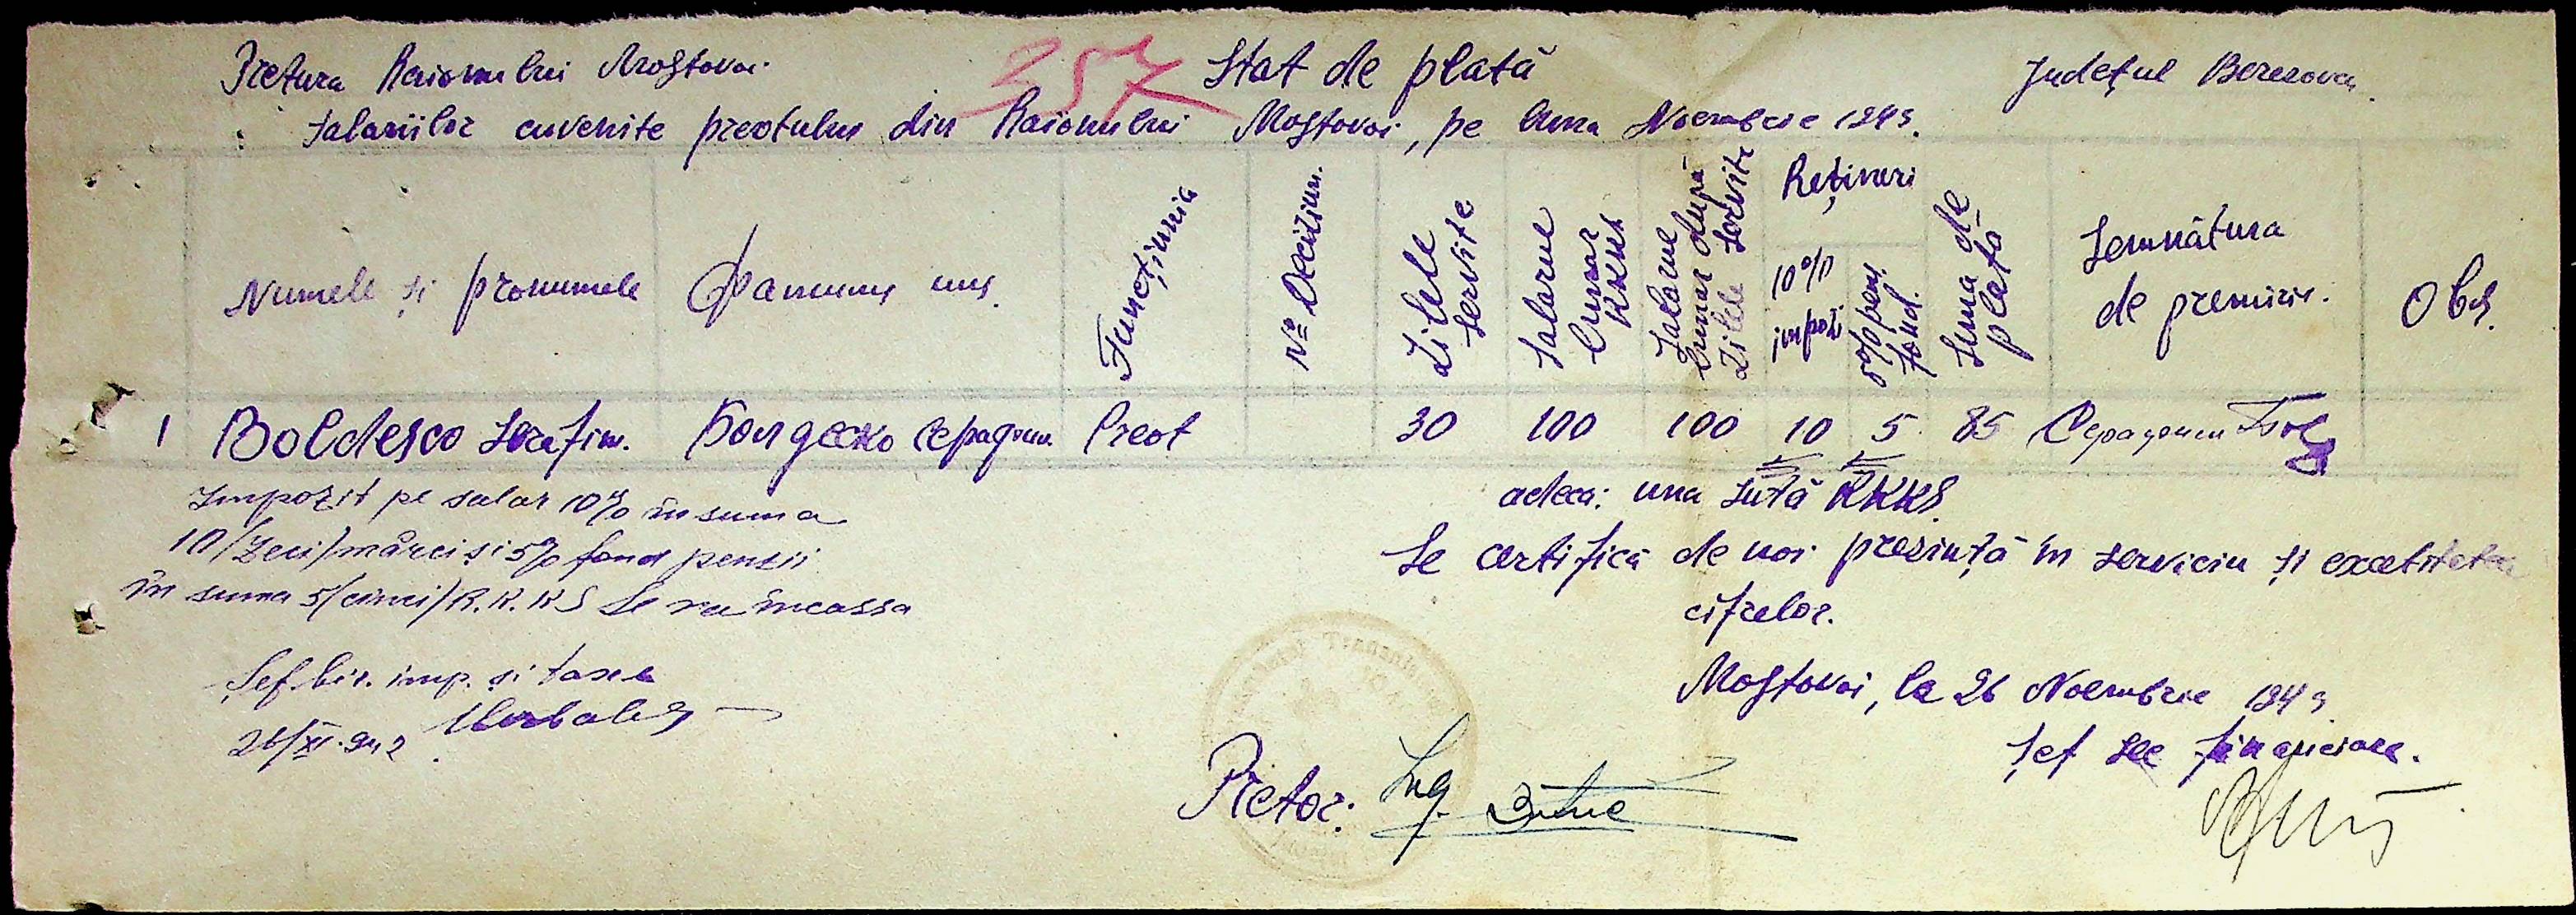 Pretura Raionului Mostovoi
357
Stat de plată
Județul Berezovca
salariilor cuvenite preotului din Raionului Mostovoi, pe luna Noembrie 1943.
Numele și pronumele
Фамилия имя
Funcțiunia
№ Deciziun.
Zilele servite
Salarul lunar RKKS
Salarul lunar după zilele servite
Rețineri
10% impozi
5% pens. fond.
Suma de plată
Semnătura de premirie.
Obs.
1 Boldesco Serafim. Болдеско Серафим Preot 30 100 100 10 5 85 Серафим
adeca: una sută RKKS.
Impozit pe salar 10% în suma
10/Zeci/mărci și 5% fond pensii
în suma 5/cinci/R.K.K.S se va incassa
Se certifică de noi prezință în serviciu și exactitatea
cifrelor.
Șef bir. imp. și taxe
26/XI.942
Mostovoi, la 26 Noembrie 1943
Șef sec financiare.
Pretor: Ing.